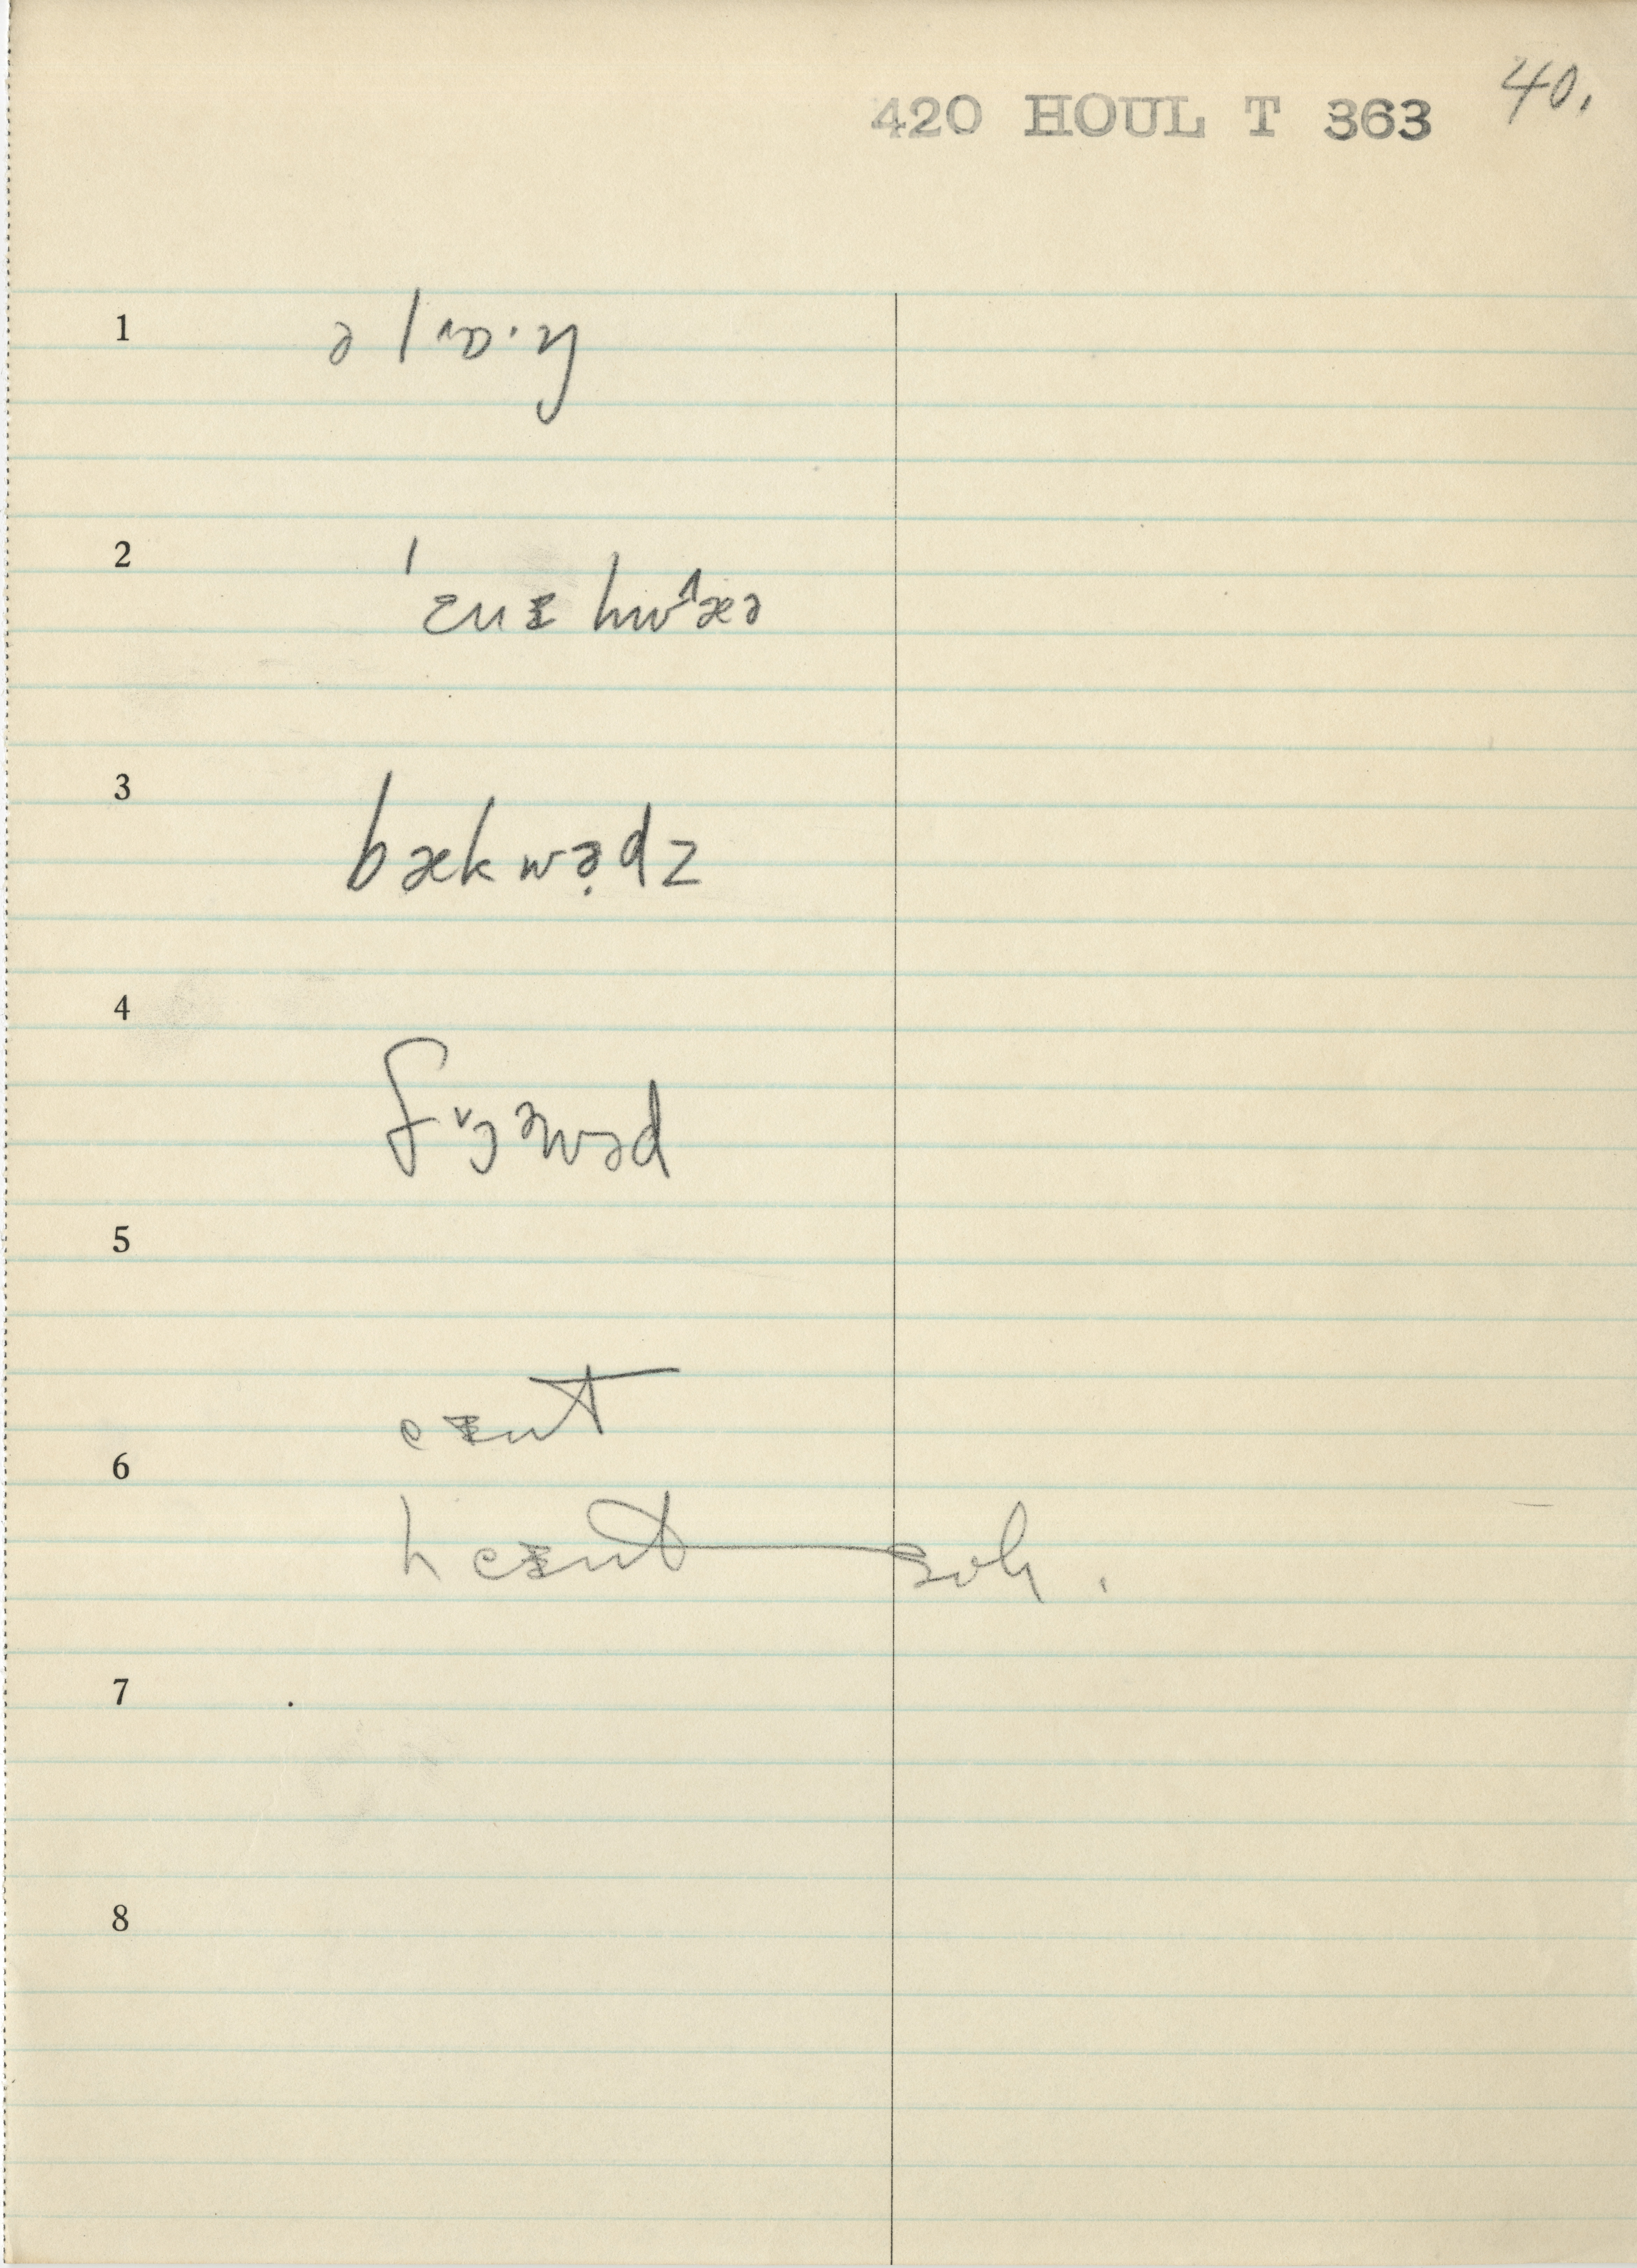 420 HOUL T 363 40.
1 əlɒ˄·ŋ
2 ˈɛnᵻhwæ˄ə
3 bækwə̣dz
4 fɔ˅əwəd
5
eᵻnt
6
heᵻnt
7
8